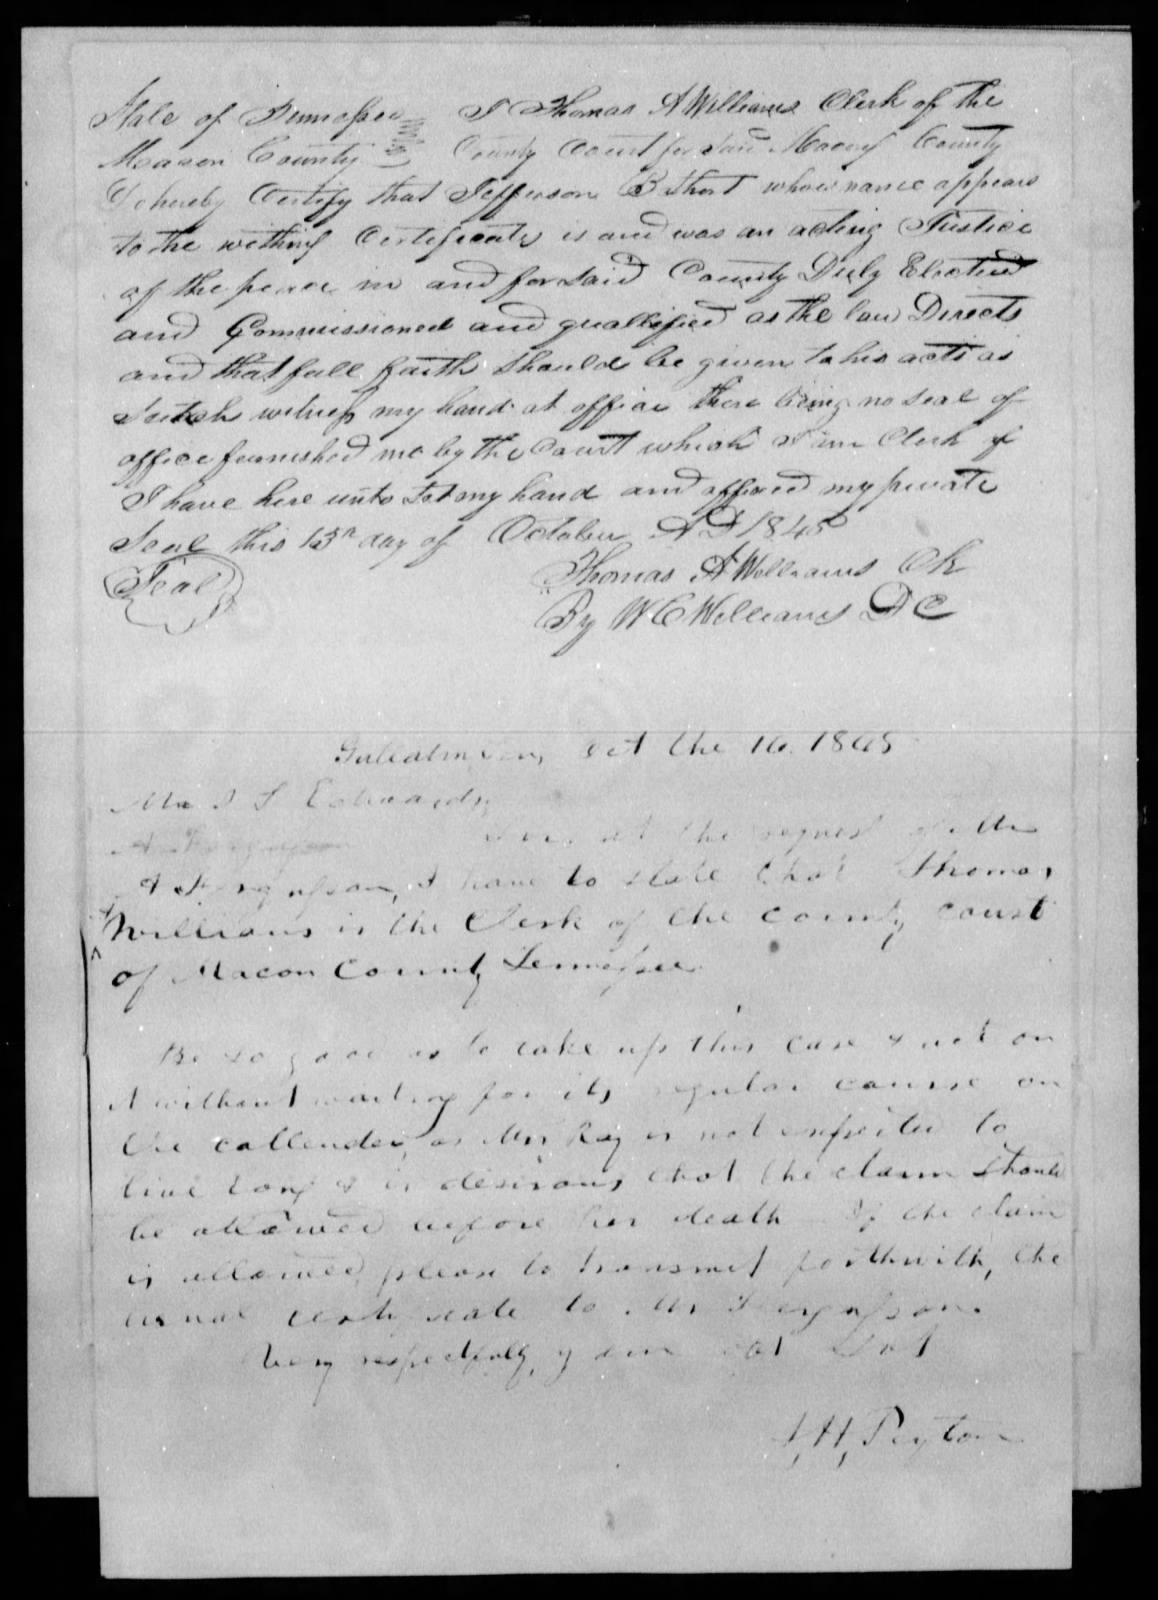 State of Tennessee I Thomas A Williams Clerk of the
Macon County County Court for Said Macon County
Do hereby Certify that Jefferson B Short whose name appears
to the withing Certificate is and was an acting Justice
of the peace in and for said County Duly Elected
and Commissioned and quallified as the law Directs
and that full faith should be given to his acts as
Sutch witness my hand at office there being no seal of
office furnished me by the Court which I am Clerk of
I have here unto Set my hand and affixed my private
Seal this 15th day of October AD 1845
Seal Thomas A Williams Clk
By W C Williams D C
Oct the 16. 1845
Mr J L Edwards,
Sir, at the request of Mr
A Fergusson, I have to state that Thomas
A Williams is the Clerk of the County Court
of Macon County Tennessee.
Be so good as to take up this case & act on
it without waiting for its regular course on
the callender, as Mrs Ray is not expected to
live long & is desirous that the claim should
be allowed before her death If the claim
is allowed, please to transmit forthwith, the
usual certificate to Mr Fergusson.
Very respectfully, yr obt Svt
J, H, Peyton